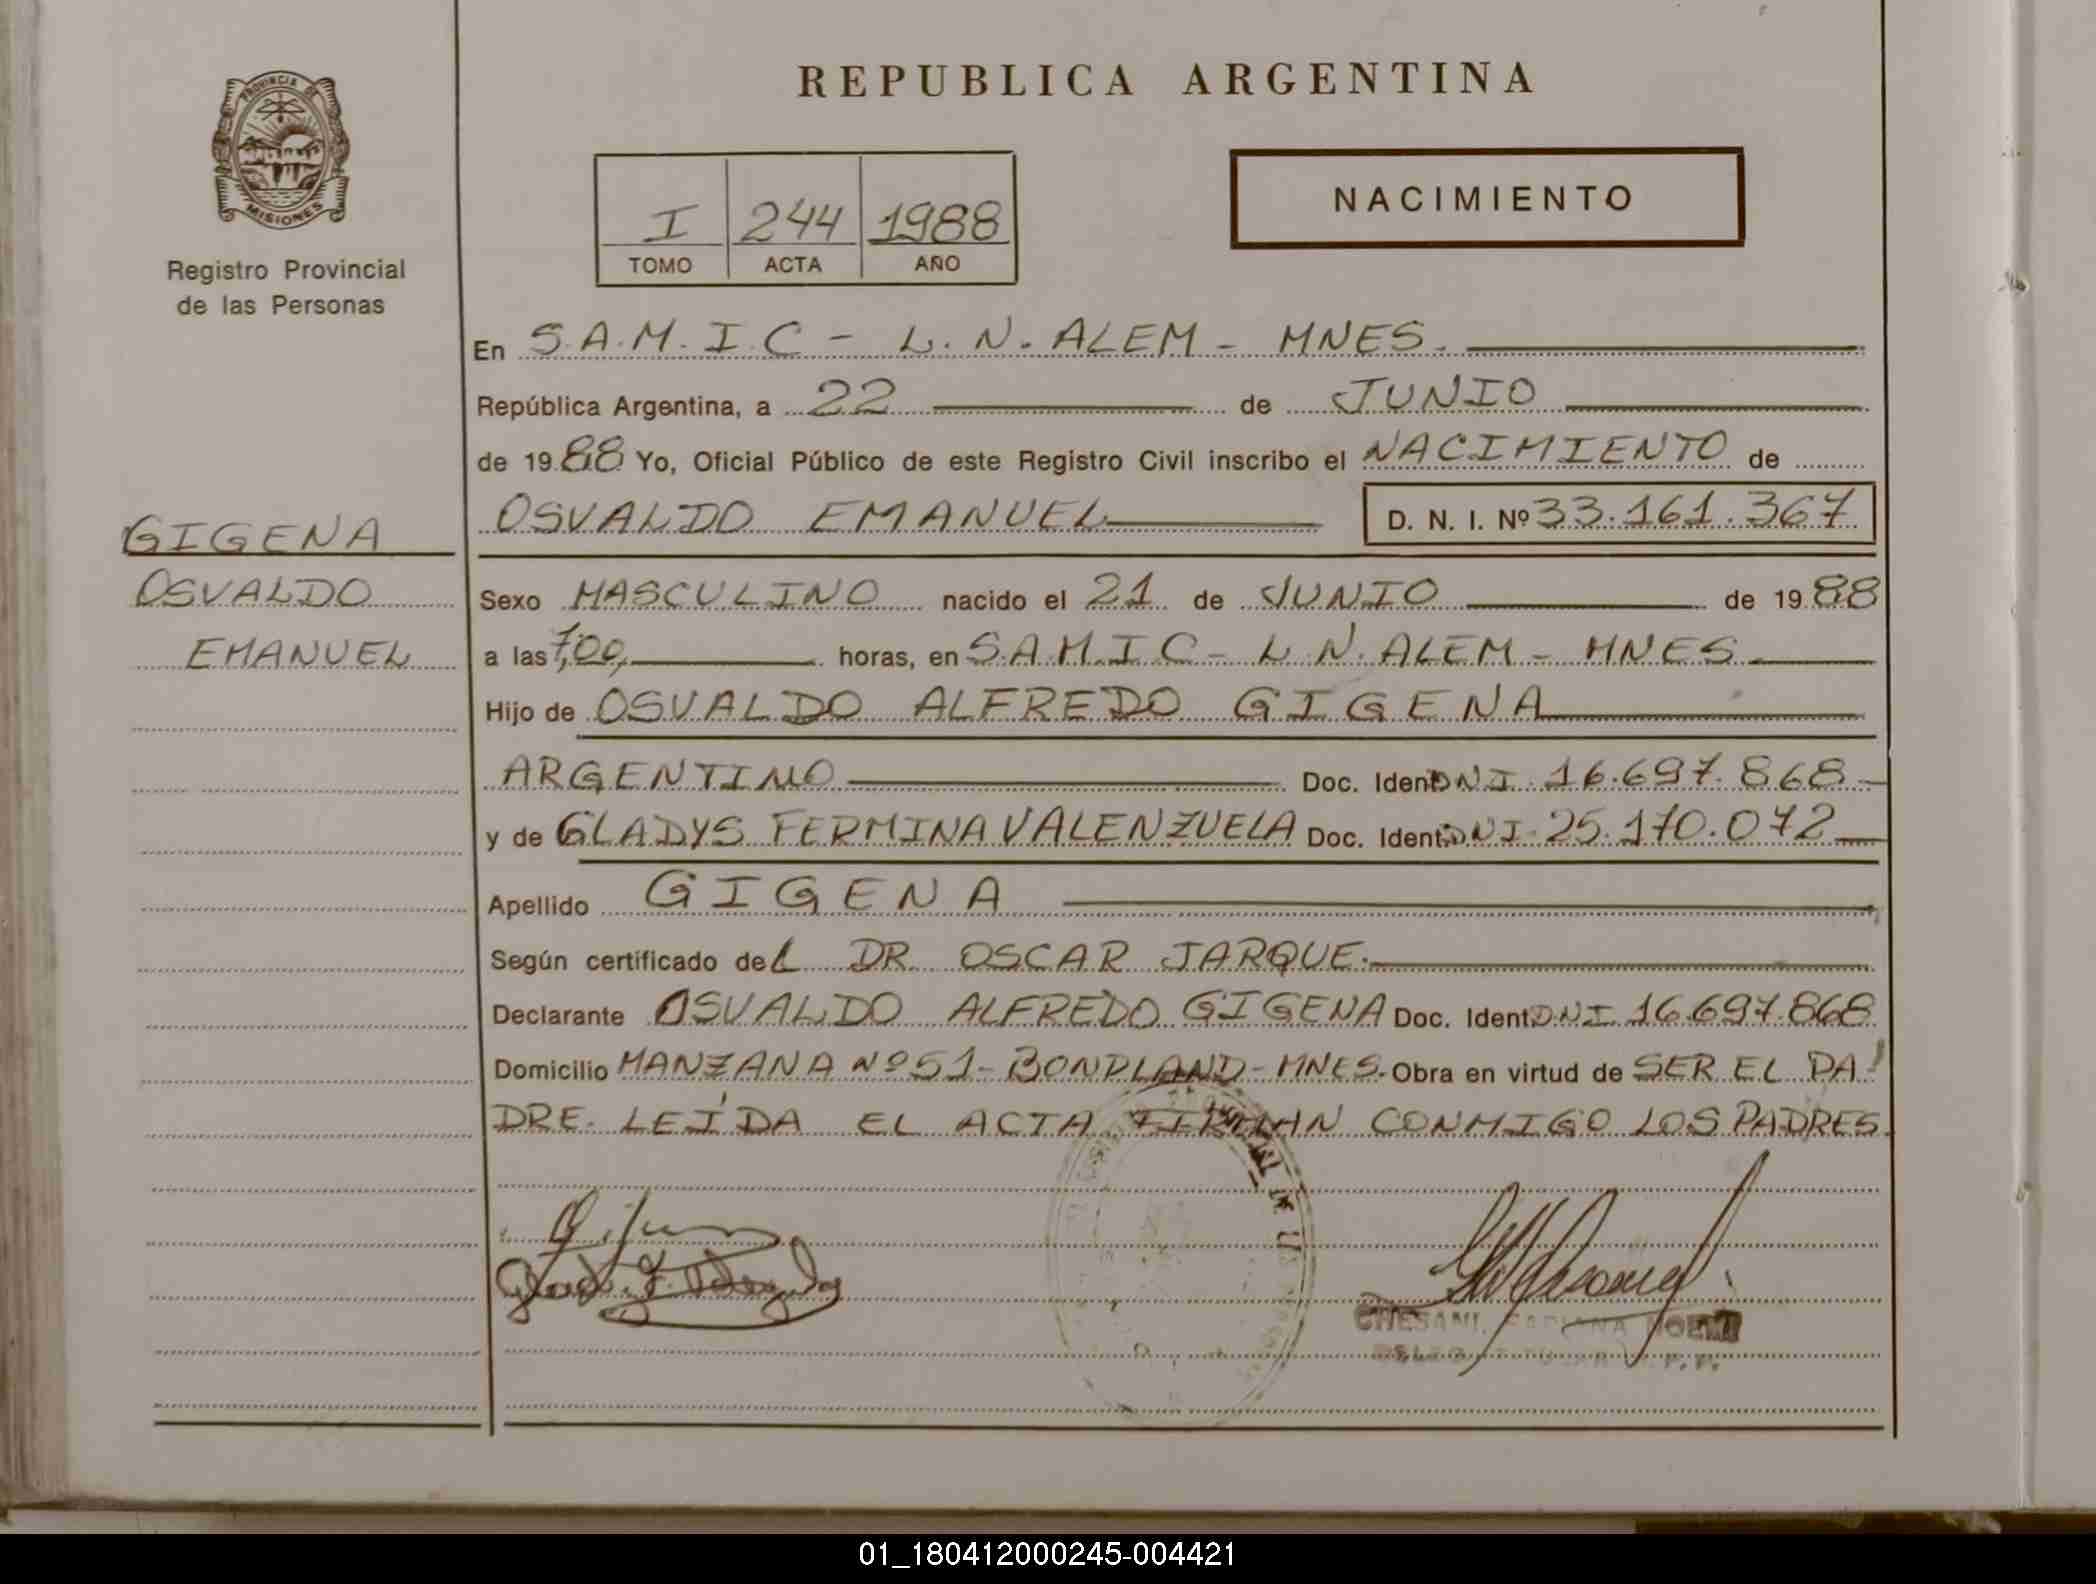 REPUBLICA ARGENTINA
PROVINCIA DE
MISIONES
Registro Provincial
de las Personas
I 244 1988
TOMO ACTA AÑO
NACIMIENTO
En S.A.M.I.C - L.N. ALEM - MNES.
República Argentina, a 22 de JUNIO
de 1988 Yo, Oficial Público de este Registro Civil inscribo el NACIMIENTO de
OSVALDO EMANUEL D. N. I. Nº 33.161.367
GIGENA
OSVALDO
EMANUEL
Sexo MASCULINO nacido el 21 de JUNIO de 1988
a las 7,00, horas, en S.A.M.I.C - L.N. ALEM - MNES.
Hijo de OSVALDO ALFREDO GIGENA
ARGENTINO Doc. Ident. DNI. 16.697.868
y de GLADYS FERMINA VALENZUELA Doc. Ident. DNI. 25.170.072
Apellido GIGENA
Según certificado del DR OSCAR JARQUE.
Declarante OSVALDO ALFREDO GIGENA Doc. Ident. DNI 16.697.868
Domicilio MANZANA Nº 51 - BONPLAND - MNES. Obra en virtud de SER EL PA
DRE. LEÍDA EL ACTA FIRMAN CONMIGO LOS PADRES.
CHESANI, FABIANA NOEMI
01_180412000245-004421